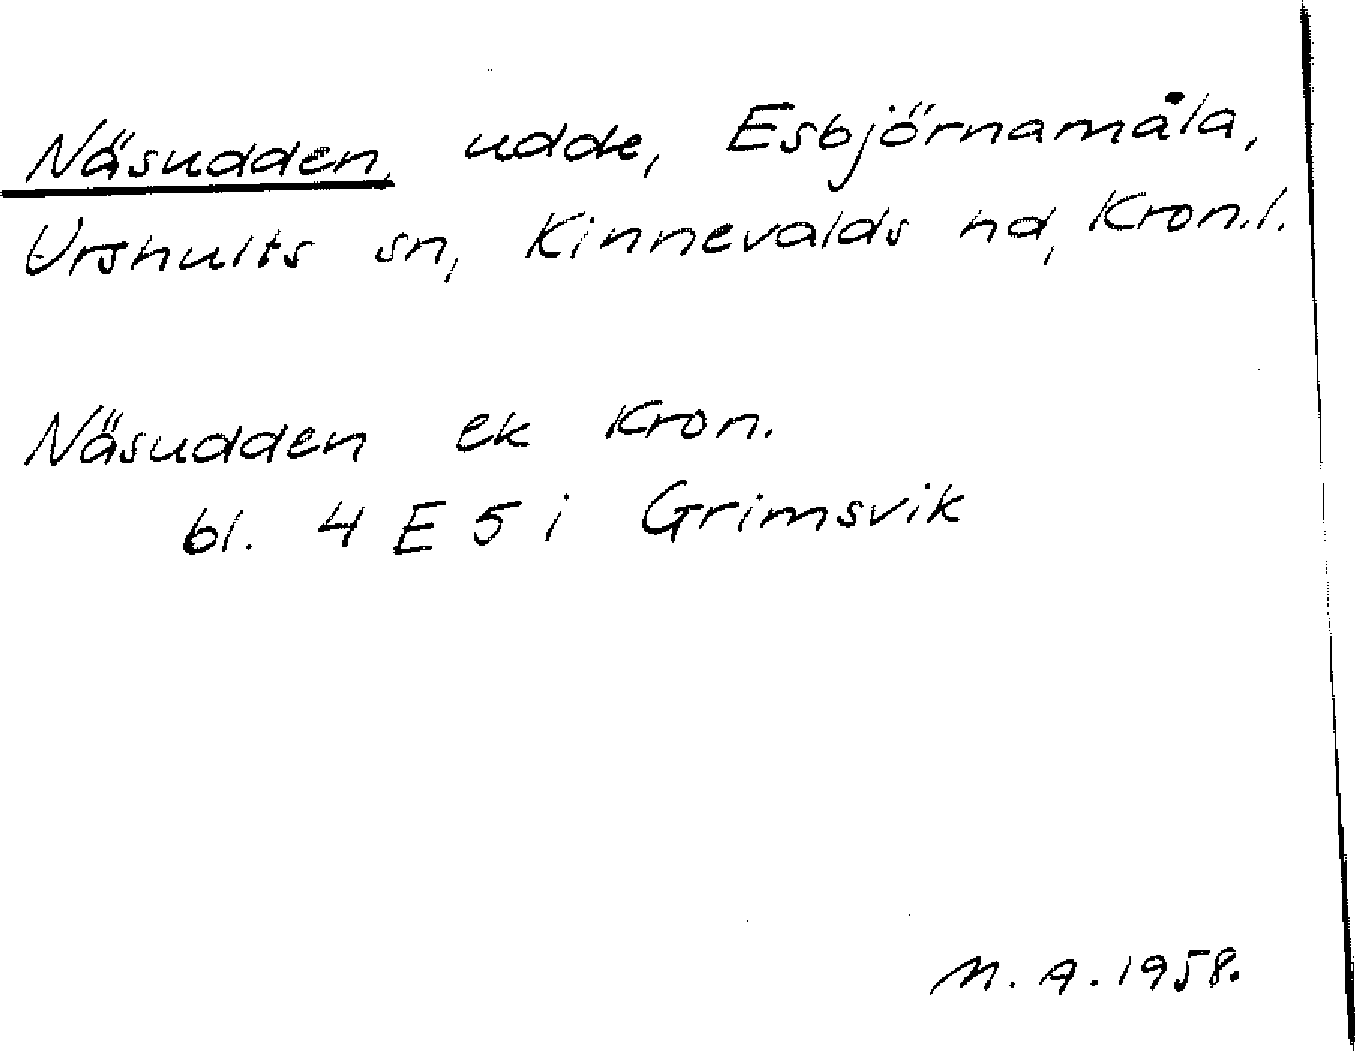 Näsudden, udde, Esbjörnamåla,
Urshults sn, Kinnevalds hd, Kron.l.
Näsudden ek Kron.
bl. 4 E 5 i Grimsvik
M. A. 1958.